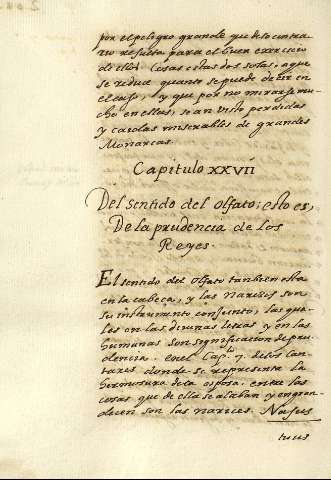 por el peligro grande que delo contra
rio resulta para el buen exercicio
de ellos. Cosas estas dos solas, a que
se reduce quanto se puede decir en
el caso, y que por no mirarse mu-
cho en ellas, se an visto perdidas
y caidas miserables de grandes
Monarcas.
Capitulo XXVII
Del sentido del olfato; esto es,
De la prudencia de los
Reyes.
El sentido del olfato tambien esta
en la cabeça, y las narizes son
su instrumento conjunto, las qua-
les en las divinas letras y en las
humanas son significacion de pru-
dencia. en el Cap.lo 7. delos Can-
tares donde se representa la
hermosura dela esposa, entre las
cosas que de ella se alaban y engran-
decen son las narices. Nasus
tuus